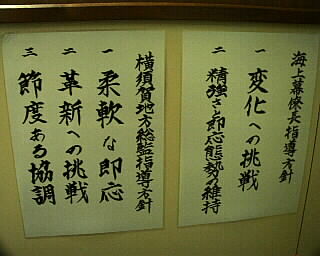 海上幕僚長指導方針
一 変化への挑戦
二 精強さと即応態勢の維持
横須賀地方総監指導方針
一 柔軟な即応
二 革新への挑戦
三 節度ある協調